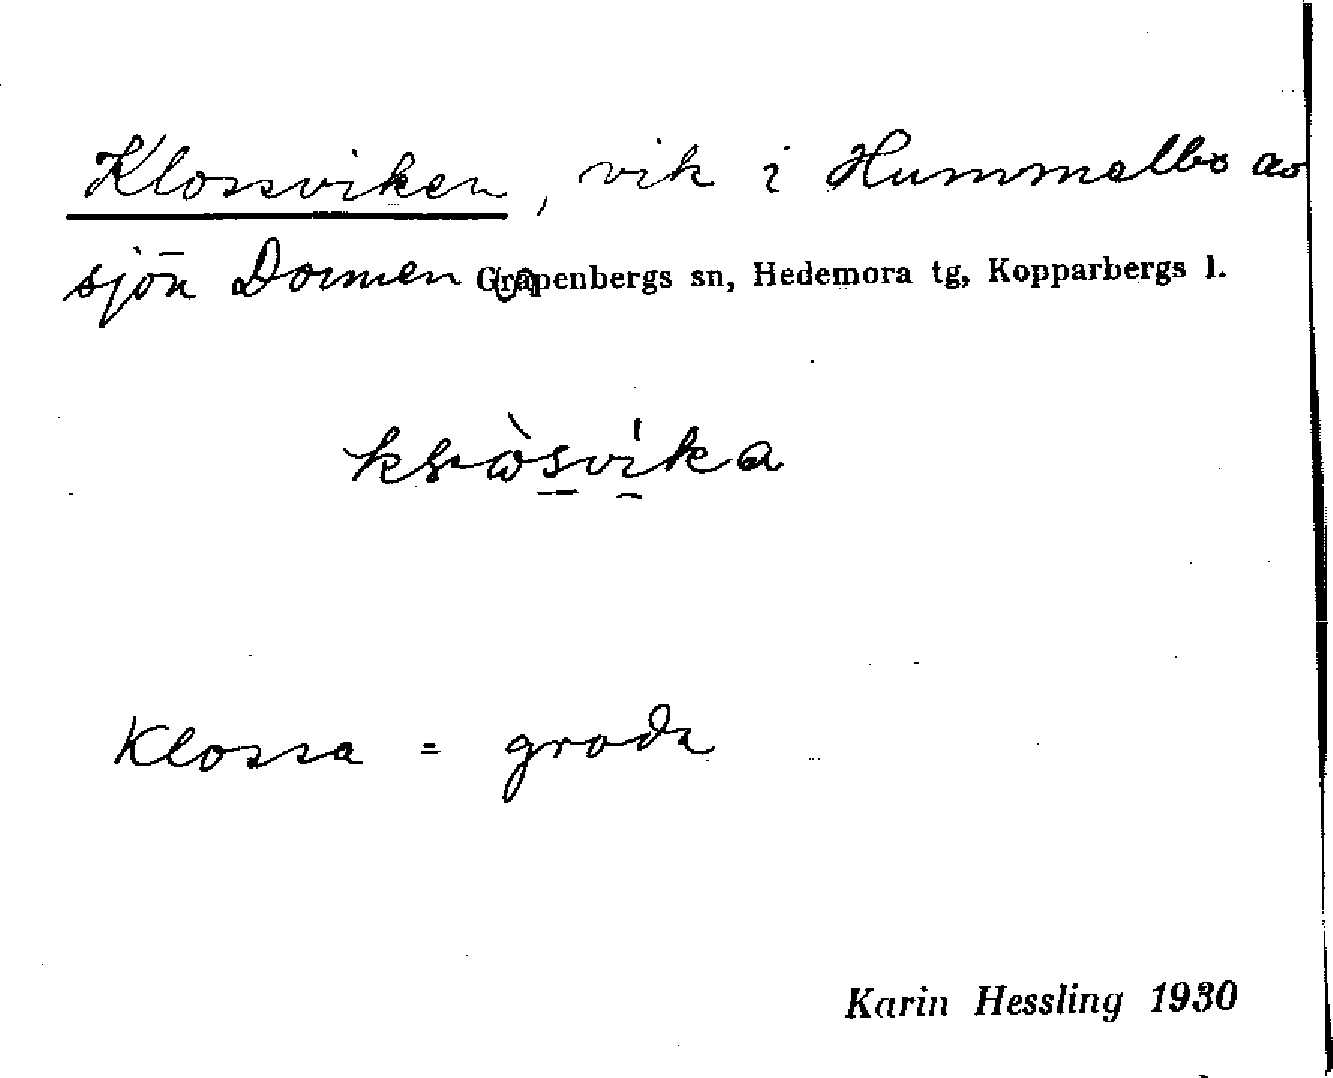 Klossviken, vik i Hummelbo av
sjön Dormen Grapenbergs sn, Hedemora tg, Kopparbergs l.
Klossa = groda
Karin Hessling 1930